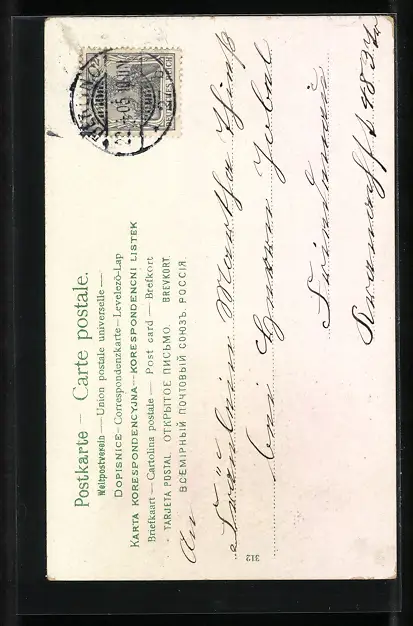 Postkarte — Carte postale.
Weltpostverein — Union postale universelle —
DOPISNICE — Correspondenzkarte — Levelező-Lap
KARTA KORESPONDENCYJNA — KORESPONDENCNI LISTEK
Briefkaart — Cartolina postale — Post card — Brefkort
TARJETA POSTAL ОТКРЫТОЕ ПИСЬМО. BREVKORT.
ВСЕМІРНЫЙ ПОЧТОВЫЙ СОЮЗЪ. РОССІЯ.
BERLIN
DEUTSCHES REICH
An
Fräulein Martha
bei Herrn
Friedenau
312